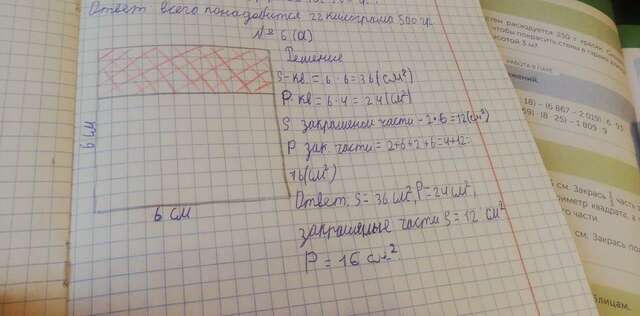 Ответ всего понадобится 22 килограма 500 гр.
№ 6 (а)
Решение
S-кв. = 6 · 6 = 36 (см²)
P кв = 6 · 4 = 24 (см²)
S закрашеной части - 2 · 6 = 12 (см²)
P зак. части = 2+6+2+6=4+12=
16 (см²)
Ответ. S = 36 см², P = 24 см²,
закрашеные части S = 12 см²
P = 16 см²
6 см
6 см
расходуется 250 г краски.
чтобы покрасить стены в
высотой 3 м?
РАБОТА В ПАРЕ
18) - (6 867 - 2 019) : 6 93
59) · (8 · 25) - 1 805 · 9
см. Закрась 1/3 часть
периметр квадрата, а
части.
см. Закрась
таблицам.